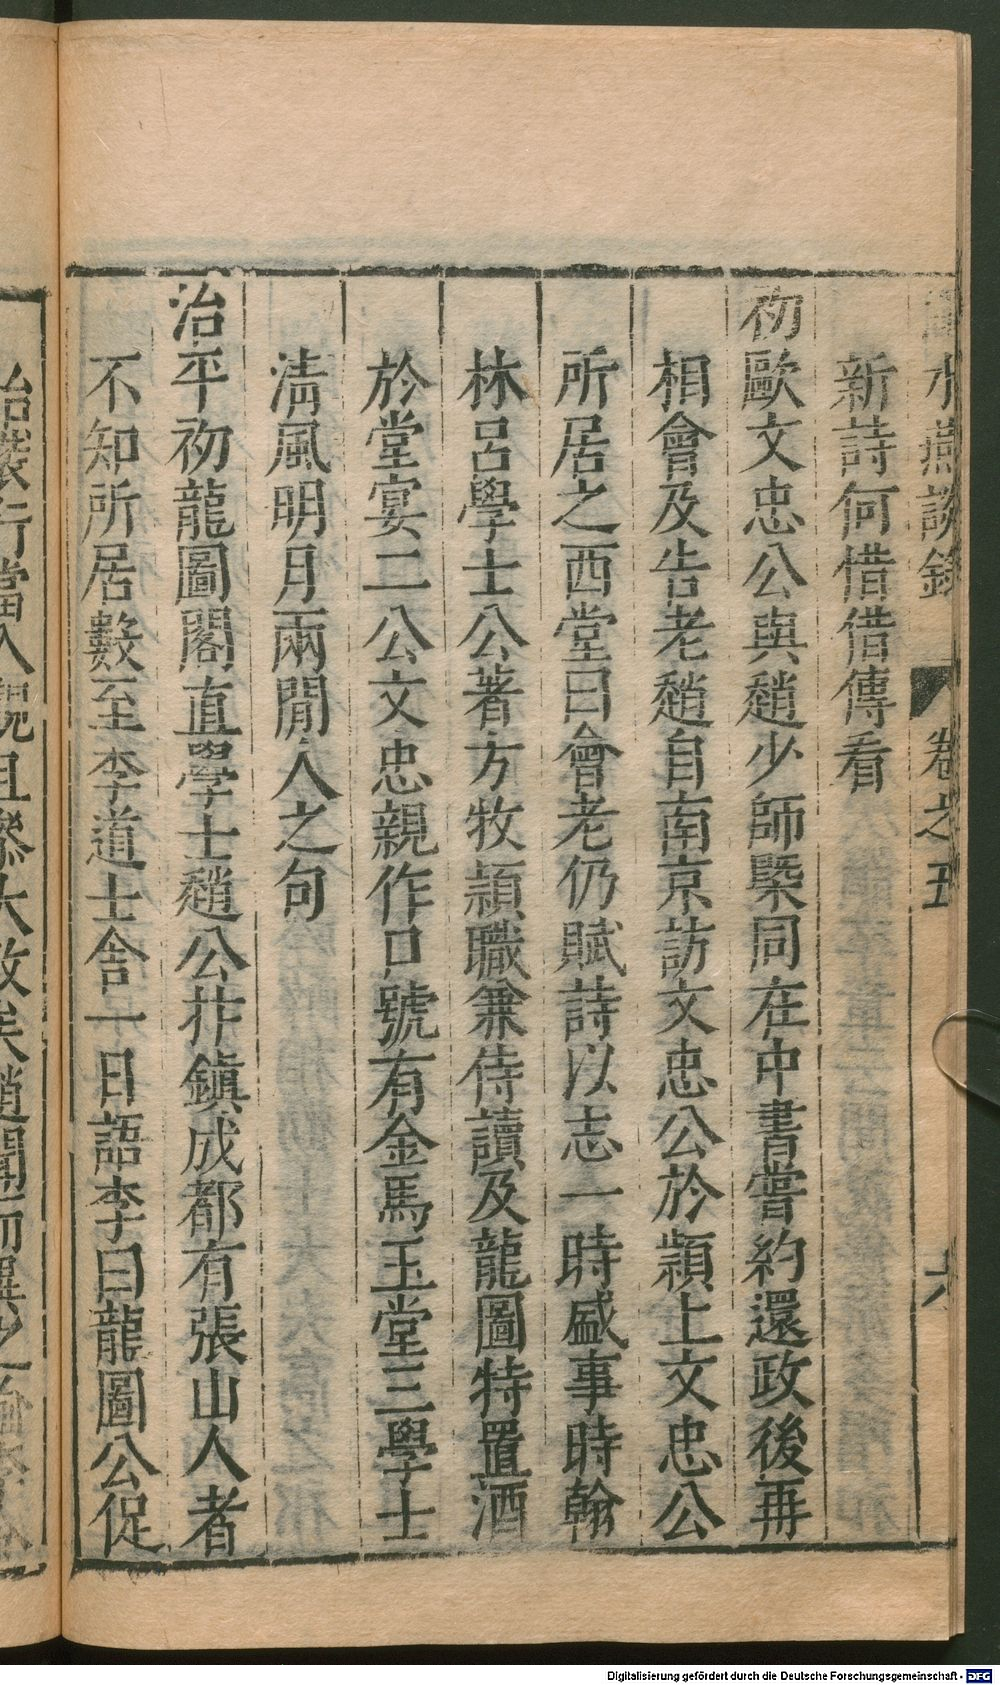 水燕談錄 卷之五 六
新詩何惜借傳看
初歐文忠公與趙少師槩同在中書嘗約還政後再
相會及告老趙自南京訪文忠公於潁上文忠公
所居之西堂曰會老仍賦詩以志一時盛事時翰
林呂學士公著方牧潁職兼侍讀及龍圖特置酒
於堂宴二公文忠親作口號有金馬玉堂三學士
清風明月兩閒人之句
治平初龍圖閣直學士趙公抃鎮成都有張山人者
不知所居數至李道士舍一日語李曰龍圖公促
治裝行當入覲且參大政矣趙聞而異之
Digitalisierung gefördert durch die Deutsche Forschungsgemeinschaft - DFG